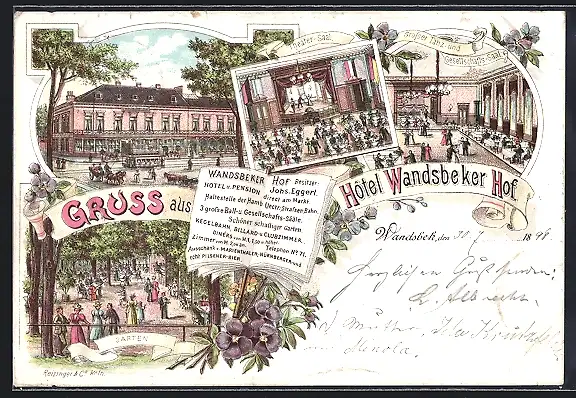 Theater-Saal.
Großer Tanz- und
Gesellschafts-Saal.
WANDSBEKER HOF Besitzer:
HOTEL u. PENSION Johs. Eggert.
direct am Markt.
Haltestelle der Hamb. Electr. Straßen-Bahn.
3 große Ball- u. Gesellschafts-Sääle.
Schöner schattiger Garten.
KEGELBAHN, BILLARD u. CLUBZIMMER.
DINERS von M.1,50 u. höher.
Zimmer von M. 2,00 an. Telephon No 71.
Ausschank v. MARIENTHALER, NÜRNBERGER und
echt PILSENER-BIER.
GRUSS aus
Hôtel Wandsbeker Hof.
Wandsbek, den 1898
L. Albrecht.
GARTEN